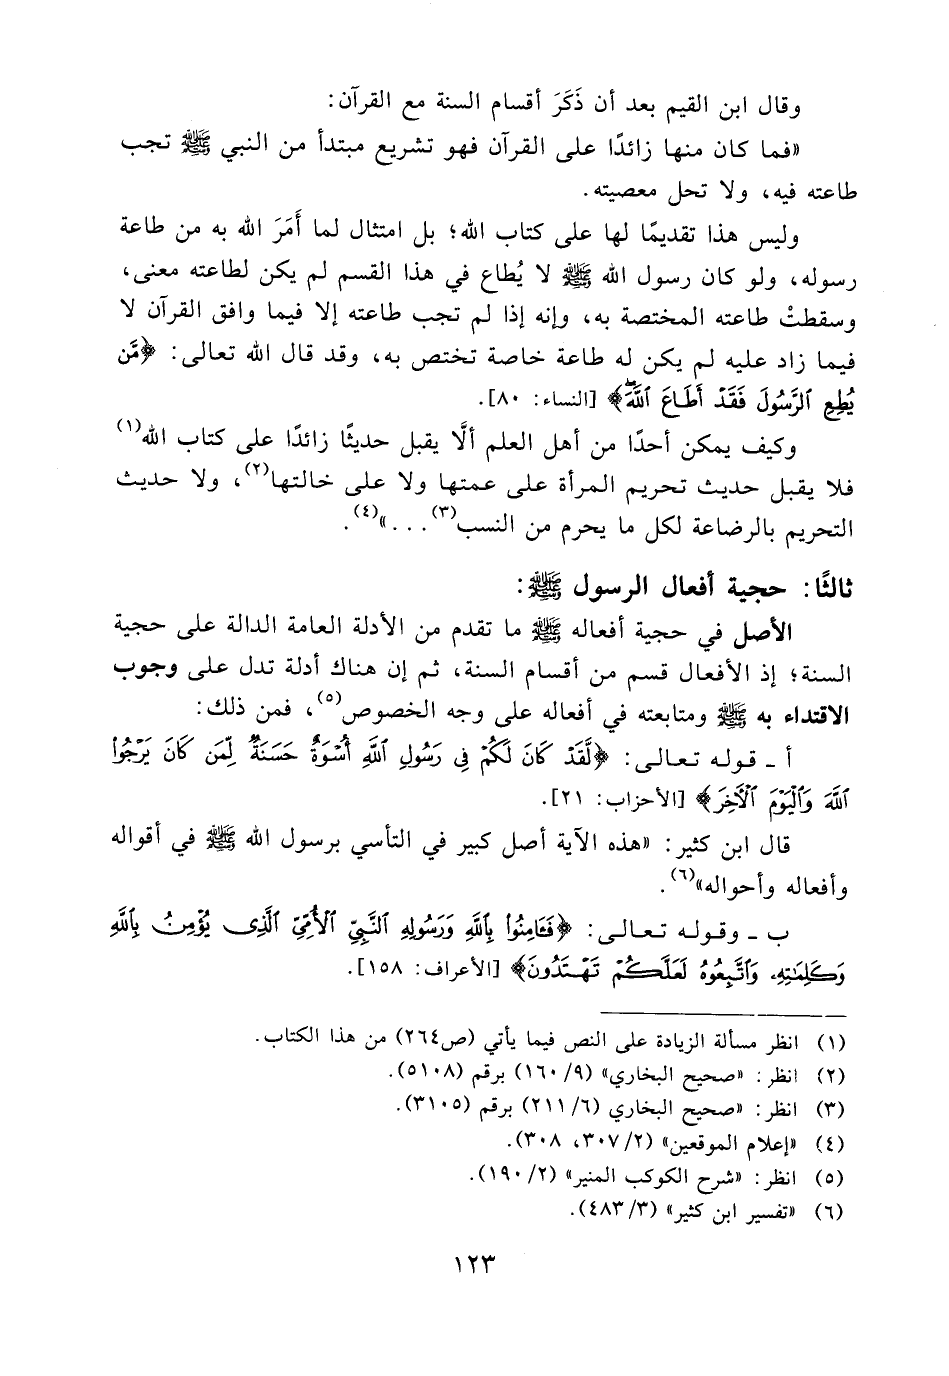 وقال ابن القيم بعد أن ذَكَرَ أقسام السنة مع القرآن:
«فما كان منها زائدًا على القرآن فهو تشريع مبتدأ من النبي ﷺ تجب
طاعته فيه، ولا تحل معصيته.
وليس هذا تقديمًا لها على كتاب الله؛ بل امتثال لما أَمَرَ الله به من طاعة
رسوله، ولو كان رسول الله ﷺ لا يُطاع في هذا القسم لم يكن لطاعته معنى،
وسقطتْ طاعته المختصة به، وإنه إذا لم تجب طاعته إلا فيما وافق القرآن لا
فيما زاد عليه لم يكن له طاعة خاصة تختص به، وقد قال الله تعالى: ﴿مَّن
يُطِعِ ٱلرَّسُولَ فَقَدْ أَطَاعَ ٱللَّهَۖ﴾ [النساء: ٨٠].
وكيف يمكن أحدًا من أهل العلم ألَّا يقبل حديثًا زائدًا على كتاب الله(١)
فلا يقبل حديث تحريم المرأة على عمتها ولا على خالتها(٢)، ولا حديث
التحريم بالرضاعة لكل ما يحرم من النسب(٣)...»(٤).
ثالثًا: حجية أفعال الرسول ﷺ:
الأصل في حجية أفعاله ﷺ ما تقدم من الأدلة العامة الدالة على حجية
السنة؛ إذ الأفعال قسم من أقسام السنة، ثم إن هناك أدلة تدل على وجوب
الاقتداء به ﷺ ومتابعته في أفعاله على وجه الخصوص(٥)، فمن ذلك:
أ ـ قوله تعالى: ﴿لَّقَدْ كَانَ لَكُمْ فِى رَسُولِ ٱللَّهِ أُسْوَةٌ حَسَنَةٌ لِّمَن كَانَ يَرْجُوا۟
ٱللَّهَ وَٱلْيَوْمَ ٱلْءَاخِرَ﴾ [الأحزاب: ٢١].
قال ابن كثير: «هذه الآية أصل كبير في التأسي برسول الله ﷺ في أقواله
وأفعاله وأحواله»(٦).
ب ـ وقوله تعالى: ﴿فَـَٔامِنُوا۟ بِٱللَّهِ وَرَسُولِهِ ٱلنَّبِىِّ ٱلْأُمِّىِّ ٱلَّذِى يُؤْمِنُ بِٱللَّهِ
وَكَلِمَـٰتِهِۦ وَٱتَّبِعُوهُ لَعَلَّكُمْ تَهْتَدُونَ﴾ [الأعراف: ١٥٨].
(١) انظر مسألة الزيادة على النص فيما يأتي (ص٢٦٤) من هذا الكتاب.
(٢) انظر: «صحيح البخاري» (١٦٠/٩) برقم (٥١٠٨).
(٣) انظر: «صحيح البخاري (٢١١/٦) برقم (٣١٠٥).
(٤) «إعلام الموقعين» (٣٠٧/٢، ٣٠٨).
(٥) انظر: «شرح الكوكب المنير» (١٩٠/٢).
(٦) «تفسير ابن كثير» (٤٨٣/٣).
١٢٣